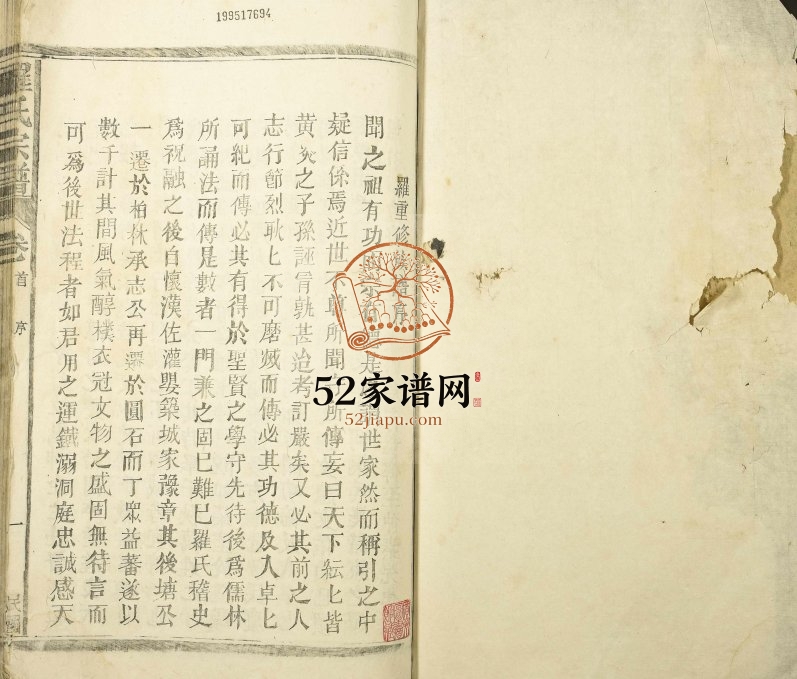 199517694
羅重修
聞之祖有功
世家然而稱引之中
疑信係焉近世不
所聞
所傳妄曰天下耘匕皆
黄炎之子孫誣冐孰甚迨考訂嚴矣又必其前之人
志行節烈耿匕不可磨烕而傳必其功德及人卓匕
可紀而傳必其有得於聖賢之學守先待後爲儒林
所誦法而傳是數者一門兼之固已難已羅氏稽史
爲祝融之後自懷漢佐灌嬰築城家豫章其後塘公
一遷於柏林承志公再遷於圓石而丁眾益蕃遂以
數千計其間風氣醇樸衣冠文物之盛固無待言而
可爲後世法程者如君用之運鐵溺洞庭忠誠感天
羅氏宗譜
卷
首
序
一
52家谱网
52jiapu.com